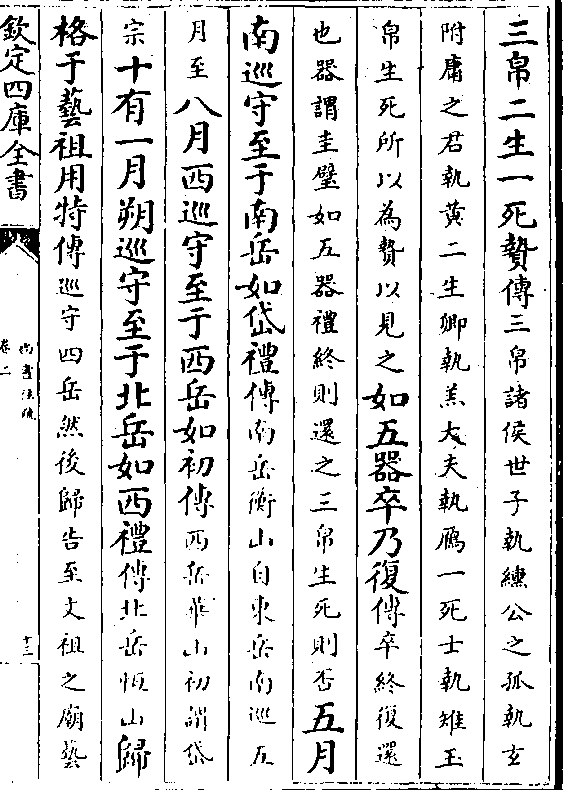 三帛二生一死贄傳三帛諸侯世子執纁公之孤執玄
附庸之君執黄二生卿執羔大夫執鴈一死士執雉玉
帛生死所以為贄以見之如五器卒乃復傳卒終復還
也器謂圭璧如五器禮終則還之三帛生死則否五月
南巡守至于南岳如岱禮傳南岳衡山自東岳南巡五
月至八月西巡守至于西岳如初傳西岳華山初謂岱
宗十有一月朔巡守至于北岳如西禮傳北岳恒山歸
格于藝祖用特傳巡守四岳然後歸告至文祖之廟藝
欽定四庫全書
尚書注疏
卷二
十三